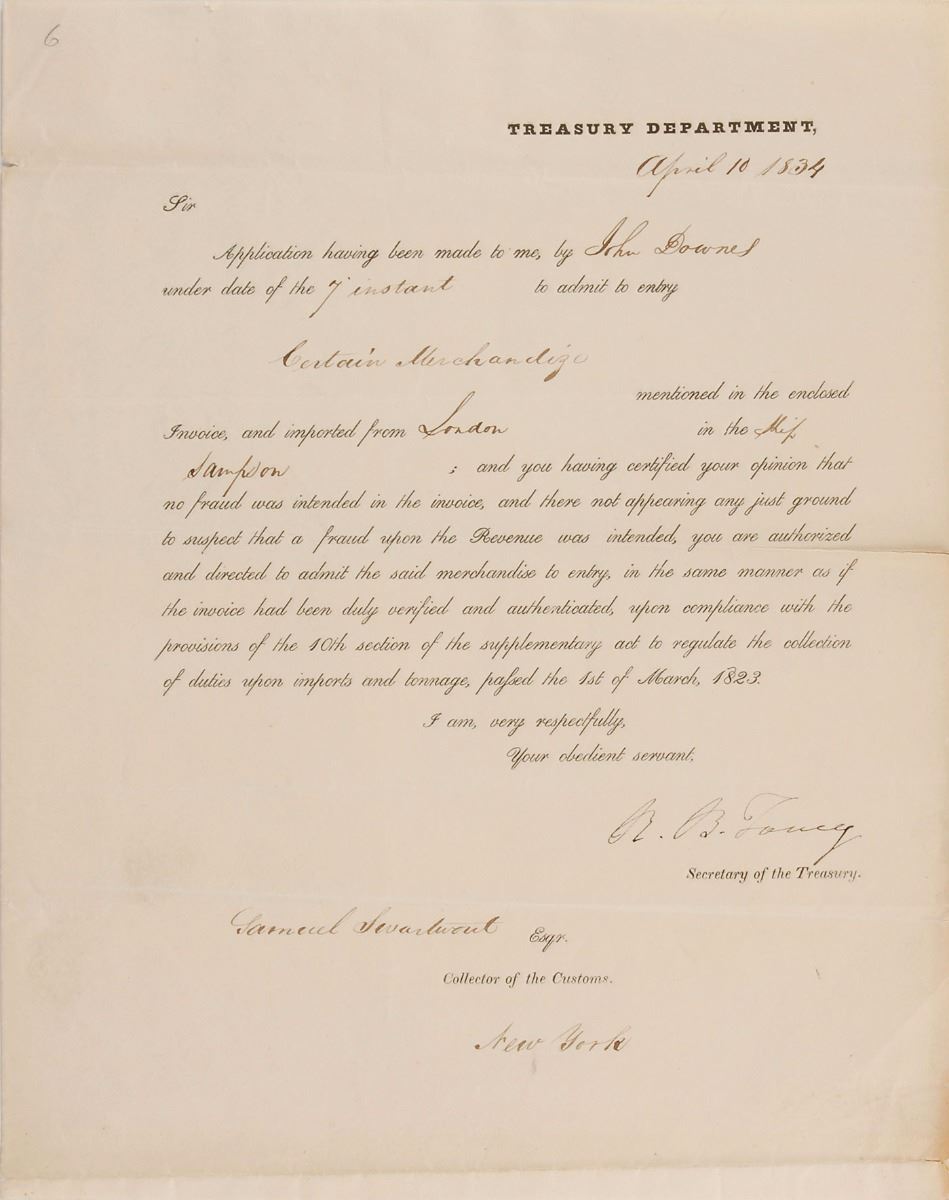 6
TREASURY DEPARTMENT,
April 10 1834
Sir
Application having been made to me, by John Downes
under date of the 7 instant to admit to entry
Certain Merchandize
mentioned in the enclosed
Invoice, and imported from London in the Ship
Sampson ; and you having certified your opinion that
no fraud was intended in the invoice, and there not appearing any just ground
to suspect that a fraud upon the Revenue was intended, you are authorized
and directed to admit the said merchandise to entry, in the same manner as if
the invoice had been duly verified and authenticated, upon compliance with the
provisions of the 10th section of the supplementary act to regulate the collection
of duties upon imports and tonnage, paſsed the 1st of March, 1823.
I am, very respectfully,
Your obedient servant,
R. B. Taney
Secretary of the Treasury.
Samuel Swartwout Esqr.
Collector of the Customs.
New York